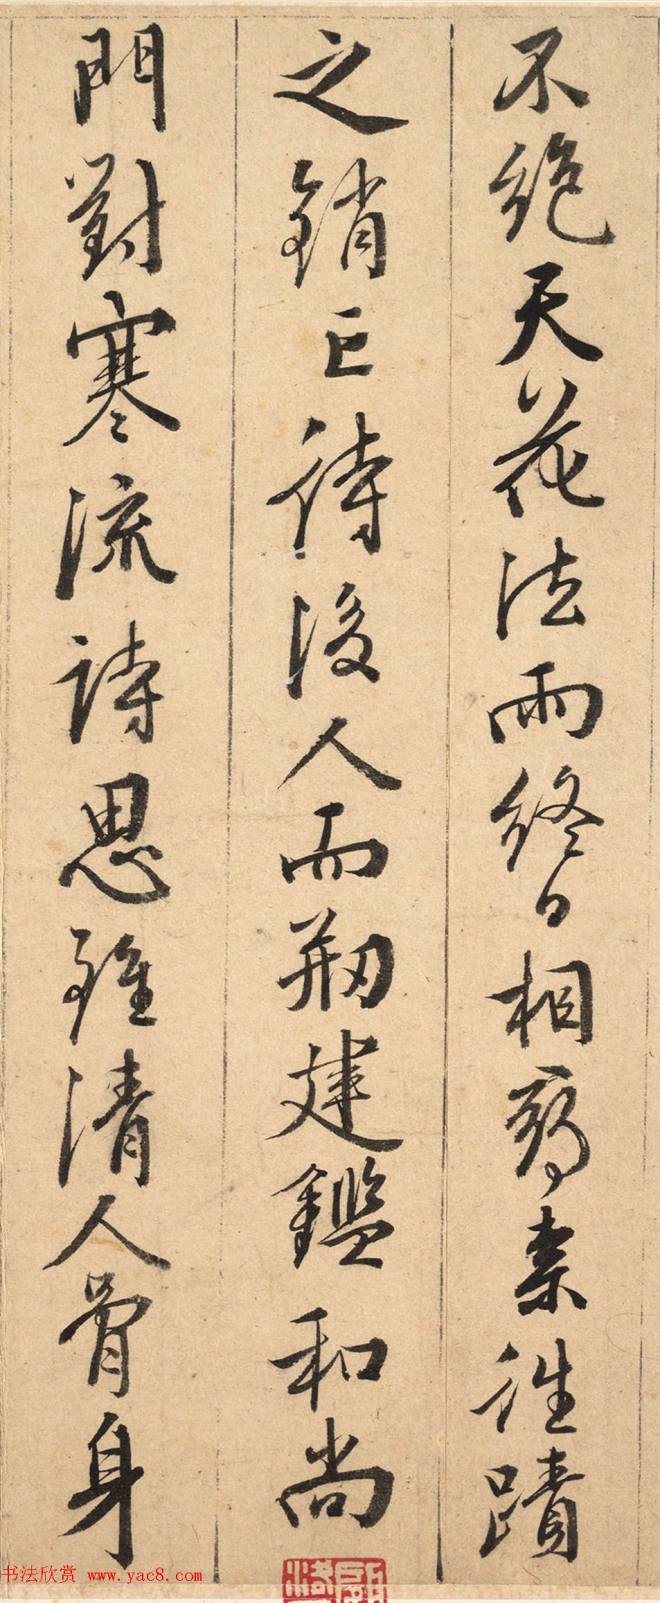 不絕天花法雨終日相柰往蹟
之銷亡待後人而剏建鑑和尚
門對寒流詩思雖清入骨身
书法欣赏 www.yac8.com